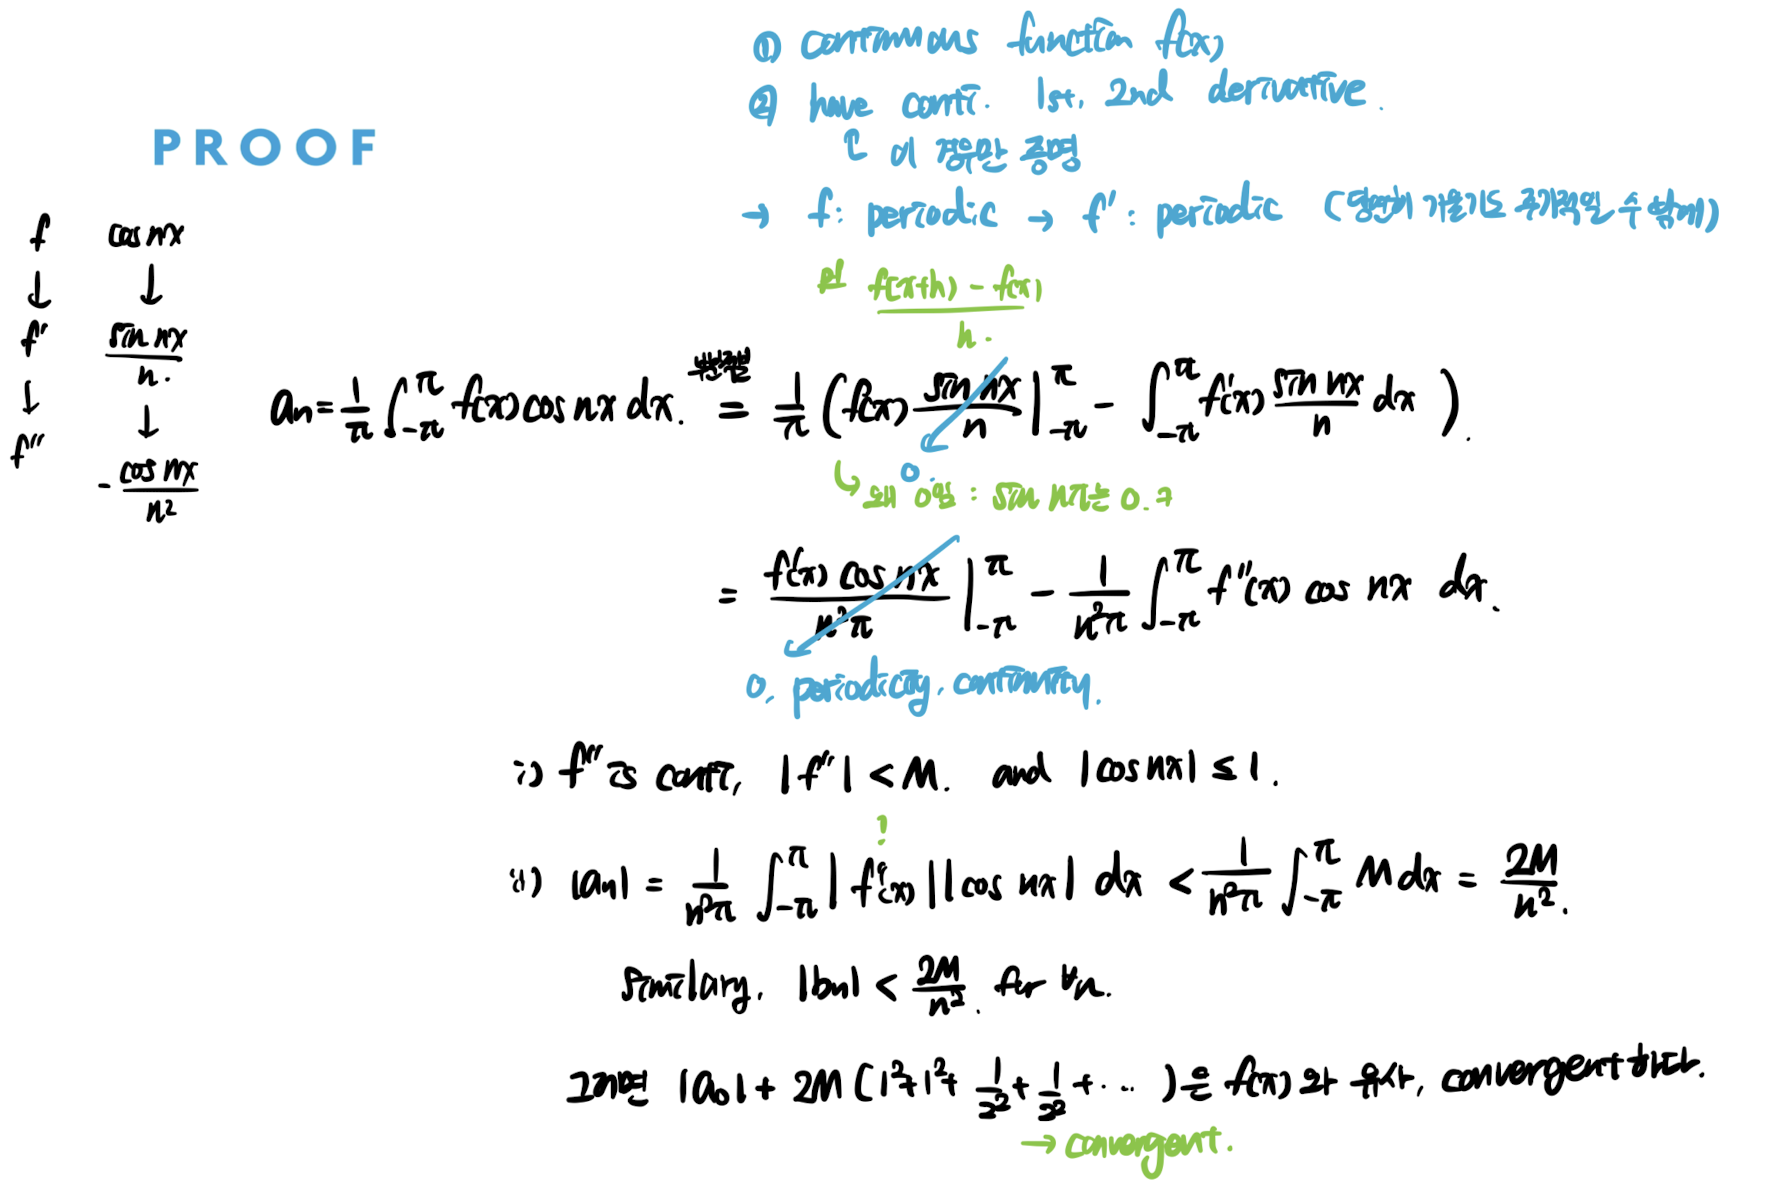 ① continuous function f(x)
② have conti. 1st, 2nd derivative.
이 경우만 증명
PROOF
→ f : periodic → f' : periodic (당연히 기울기도 주기적일 수 밖에)
f cos nx
↓ ↓
f' sin nx / n.
↓ ↓
f'' - cos nx / n²
f(x+h) - f(x) / h.
부분적분
aₙ = 1/π ∫_{-π}^{π} f(x) cos nx dx. = 1/π ( f(x) sin nx / n |_{-π}^{π} - ∫_{-π}^{π} f'(x) sin nx / n dx ).
0.
↳ 왜 0임 : sin nπ는 0.
= f'(x) cos nx / n²π |_{-π}^{π} - 1/n²π ∫_{-π}^{π} f''(x) cos nx dx.
0, periodicity, continuity.
i) f'' is conti, |f''| < M. and |cos nx| ≤ 1.
?
ii) |aₙ| = 1/n²π ∫_{-π}^{π} |f''(x)||cos nx| dx < 1/n²π ∫_{-π}^{π} M dx = 2M/n².
Similary, |bₙ| < 2M/n². for ∀n.
그러면 |a₀| + 2M (1²+1²+ 1/2² + 1/2² + ··· )은 f(x)와 유사, convergent하다.
→ convergent.